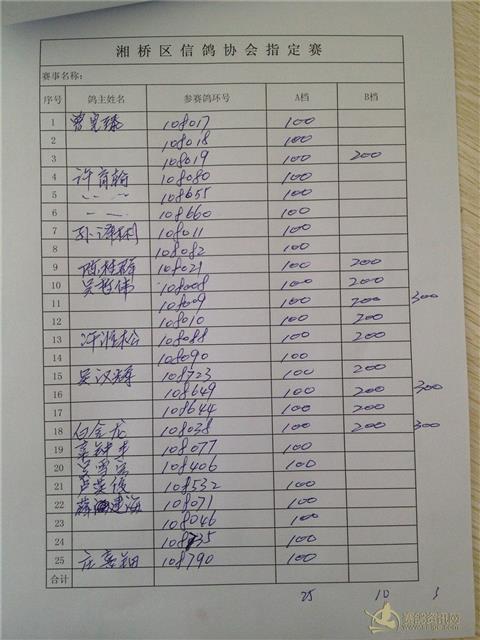 湘桥区信鸽协会指定赛
赛事名称:
序号 鸽主姓名 参赛鸽环号 A档 B档
1 108017 100
2 108018 100
3 108019 100 200
4 许育翰 108080 100
5 108655 100
6 108660 100
7 108011 100
8 108082 100
9 陈桂群 108021 100 200
10 吴哲伟 108008 100 200
11 108009 100 200 300
12 108010 100 200
13 许淮松 108088 100 200
14 108090 100
15 吴汉辉 108723 100 200
16 108649 100 200 300
17 108644 100 200
18 白金龙 108038 100 200 300
19 108077 100
20 108406 100
21 108532 100
22 108071 100
23 108046 100
24 108735 100
25 108790 100
合计 25 10 3
赛鸽资讯网